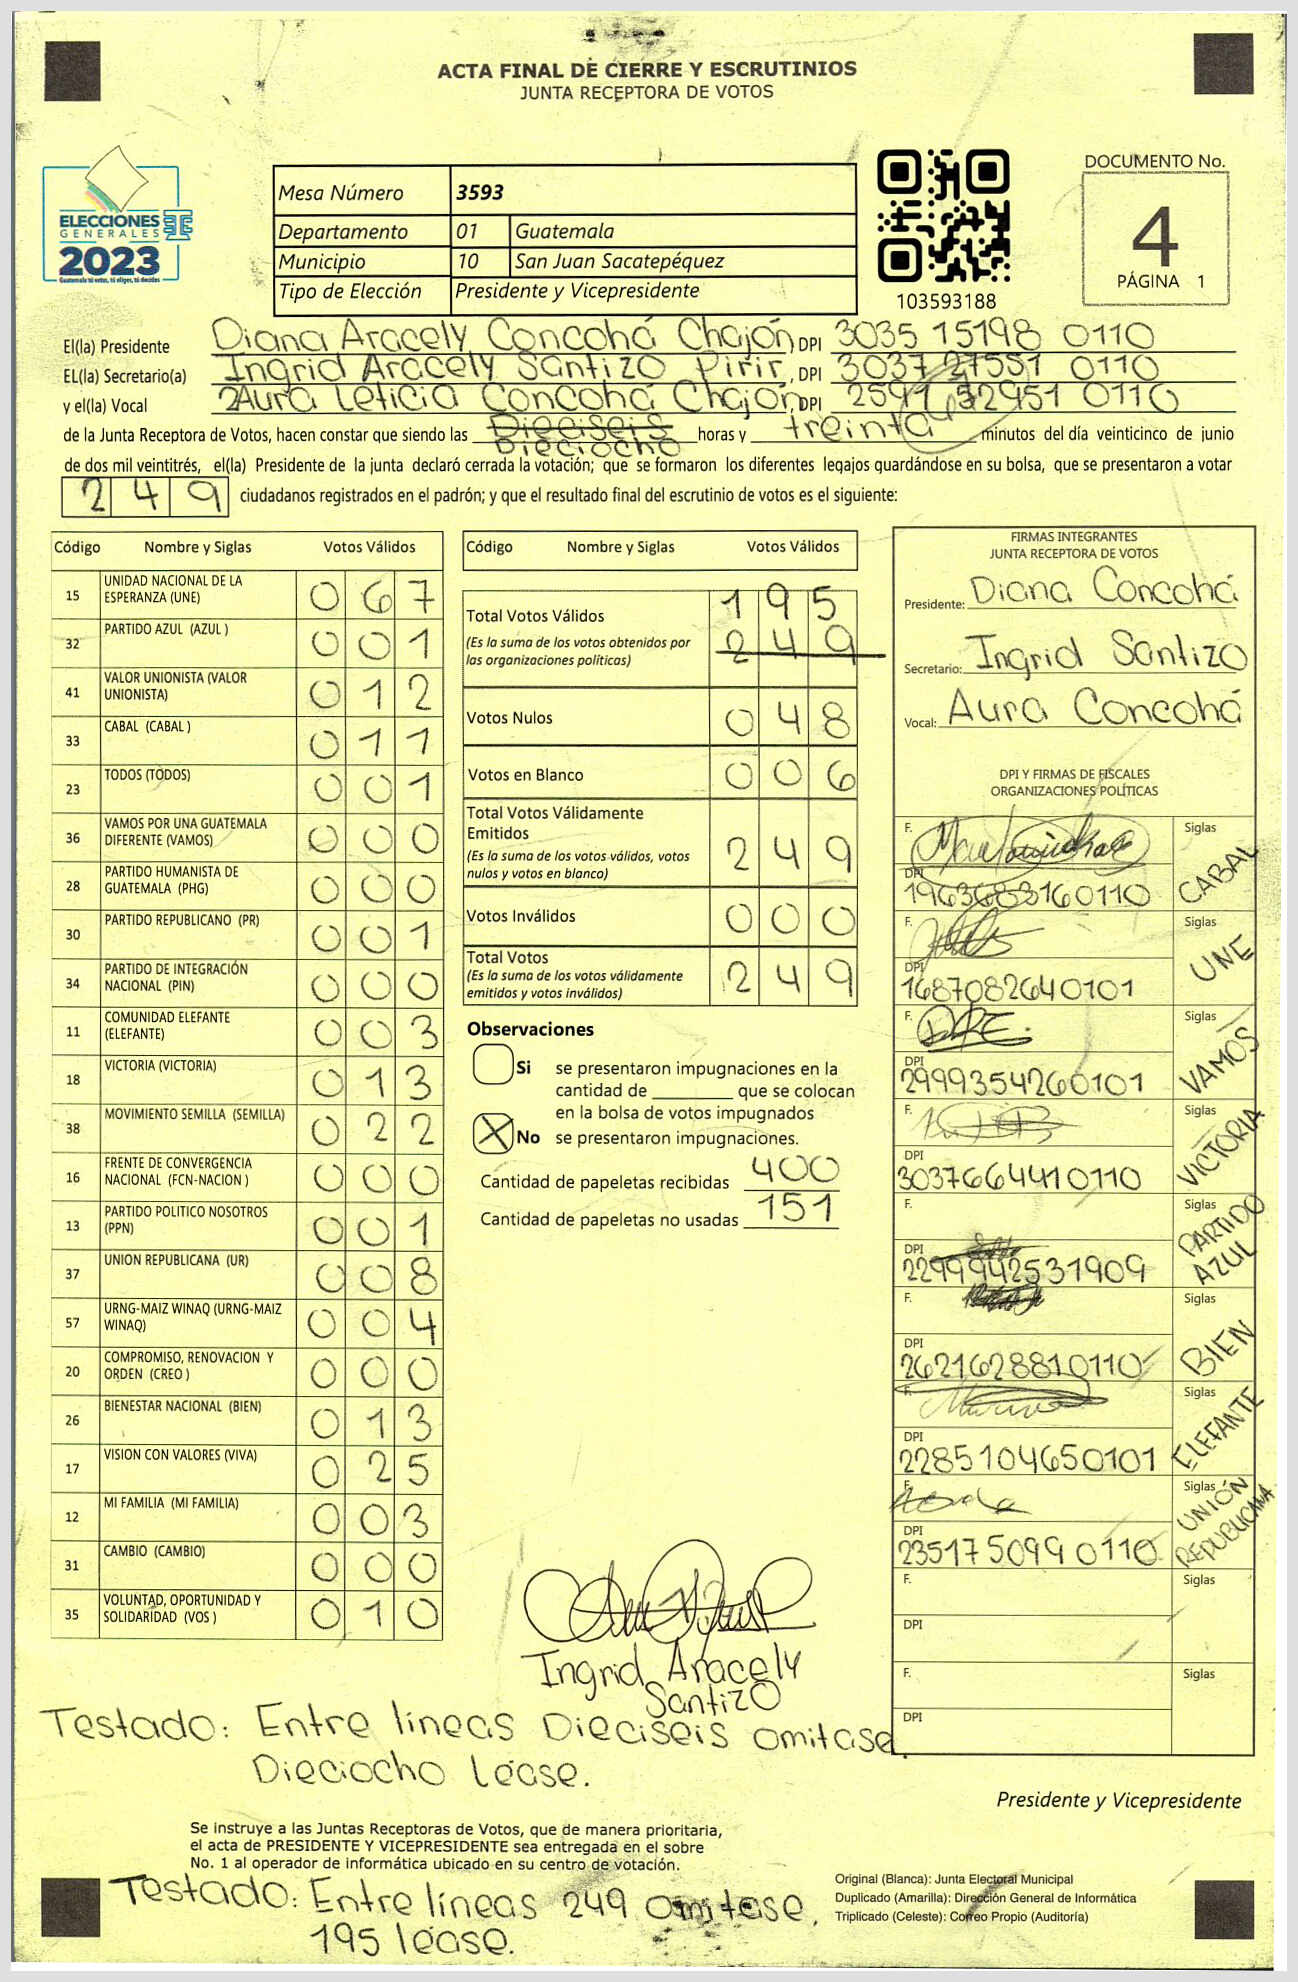 ACTA FINAL DE CIERRE Y ESCRUTINIOS
JUNTA RECEPTORA DE VOTOS
ELECCIONES
GENERALES
2023
Guatemala tú votas, tú eliges, tú decides
Mesa Número 3593
Departamento 01 Guatemala
Municipio 10 San Juan Sacatepéquez
Tipo de Elección Presidente y Vicepresidente
103593188
DOCUMENTO No.
4
PÁGINA 1
El(la) Presidente Diana Aracely Concohá Chajón, DPI 3035 15198 0110
EL(la) Secretario(a) Ingrid Aracely Santizo Pirir, DPI 3037 27551 0110
y el(la) Vocal Aura Leticia Concohá Chajón, DPI 2591 52951 0110
de la Junta Receptora de Votos, hacen constar que siendo las Dieciseis horas y treinta minutos del día veinticinco de junio
Dieciocho
de dos mil veintitrés, el(la) Presidente de la junta declaró cerrada la votación; que se formaron los diferentes legajos guardándose en su bolsa, que se presentaron a votar
249 ciudadanos registrados en el padrón; y que el resultado final del escrutinio de votos es el siguiente:
Código Nombre y Siglas Votos Válidos
15 UNIDAD NACIONAL DE LA ESPERANZA (UNE) 067
32 PARTIDO AZUL (AZUL ) 001
41 VALOR UNIONISTA (VALOR UNIONISTA) 012
33 CABAL (CABAL ) 011
23 TODOS (TODOS) 001
36 VAMOS POR UNA GUATEMALA DIFERENTE (VAMOS) 000
28 PARTIDO HUMANISTA DE GUATEMALA (PHG) 000
30 PARTIDO REPUBLICANO (PR) 001
34 PARTIDO DE INTEGRACIÓN NACIONAL (PIN) 000
11 COMUNIDAD ELEFANTE (ELEFANTE) 003
18 VICTORIA (VICTORIA) 013
38 MOVIMIENTO SEMILLA (SEMILLA) 022
16 FRENTE DE CONVERGENCIA NACIONAL (FCN-NACION ) 000
13 PARTIDO POLITICO NOSOTROS (PPN) 001
37 UNION REPUBLICANA (UR) 008
57 URNG-MAIZ WINAQ (URNG-MAIZ WINAQ) 004
20 COMPROMISO, RENOVACION Y ORDEN (CREO ) 000
26 BIENESTAR NACIONAL (BIEN) 013
17 VISION CON VALORES (VIVA) 025
12 MI FAMILIA (MI FAMILIA) 003
31 CAMBIO (CAMBIO) 000
35 VOLUNTAD, OPORTUNIDAD Y SOLIDARIDAD (VOS ) 010
Código Nombre y Siglas Votos Válidos
Total Votos Válidos 195
(Es la suma de los votos obtenidos por las organizaciones políticas) 249
Votos Nulos 048
Votos en Blanco 006
Total Votos Válidamente Emitidos
(Es la suma de los votos válidos, votos nulos y votos en blanco) 249
Votos Inválidos 000
Total Votos
(Es la suma de los votos válidamente emitidos y votos inválidos) 249
Observaciones
Si se presentaron impugnaciones en la
cantidad de ________ que se colocan
en la bolsa de votos impugnados
X No se presentaron impugnaciones.
Cantidad de papeletas recibidas 400
Cantidad de papeletas no usadas 151
FIRMAS INTEGRANTES
JUNTA RECEPTORA DE VOTOS
Presidente: Diana Concohá
Secretario: Ingrid Santizo
Vocal: Aura Concohá
DPI Y FIRMAS DE FISCALES
ORGANIZACIONES POLÍTICAS
F. Siglas CABAL
DPI 1963683160110
F. Siglas UNE
DPI 1687082640101
F. Siglas VAMOS
DPI 2999354260101
F. Siglas VICTORIA
DPI 3037664410110
F. Siglas PARTIDO AZUL
DPI 2299942531909
F. Siglas BIEN
DPI 2621628810110
F. Siglas ELEFANTE
DPI 2285104650101
F. Siglas UNIÓN REPUBLICANA
DPI 2351750990110
F. Siglas
DPI
F. Siglas
DPI
Ingrid Aracely
Santizo
Testado: Entre líneas Dieciseis omitase.
Dieciocho léase.
Presidente y Vicepresidente
Se instruye a las Juntas Receptoras de Votos, que de manera prioritaria,
el acta de PRESIDENTE Y VICEPRESIDENTE sea entregada en el sobre
No. 1 al operador de informática ubicado en su centro de votación.
Testado: Entre líneas 249 omitase.
195 léase.
Original (Blanca): Junta Electoral Municipal
Duplicado (Amarilla): Dirección General de Informática
Triplicado (Celeste): Correo Propio (Auditoría)